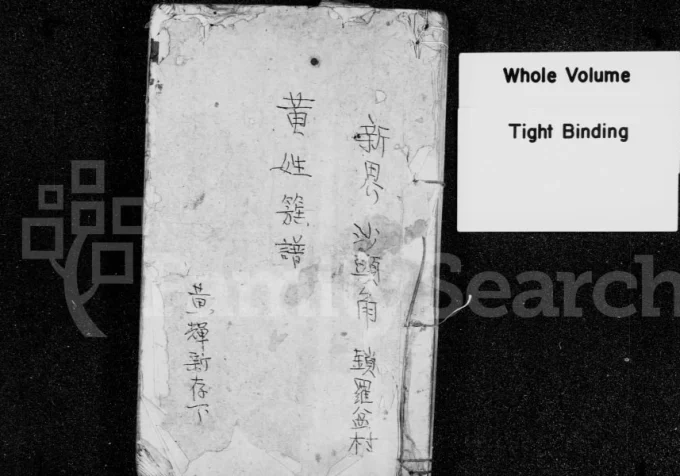 新界 沙頭角 鎖羅盆村
黃姓簇譜
黃輝新存下
Whole Volume
Tight Binding
FamilySearch